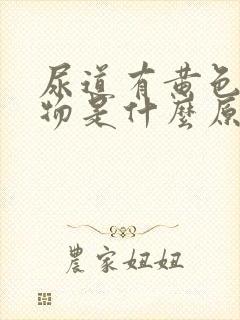 尿道有黄色
物是什麼原
農家妞妞